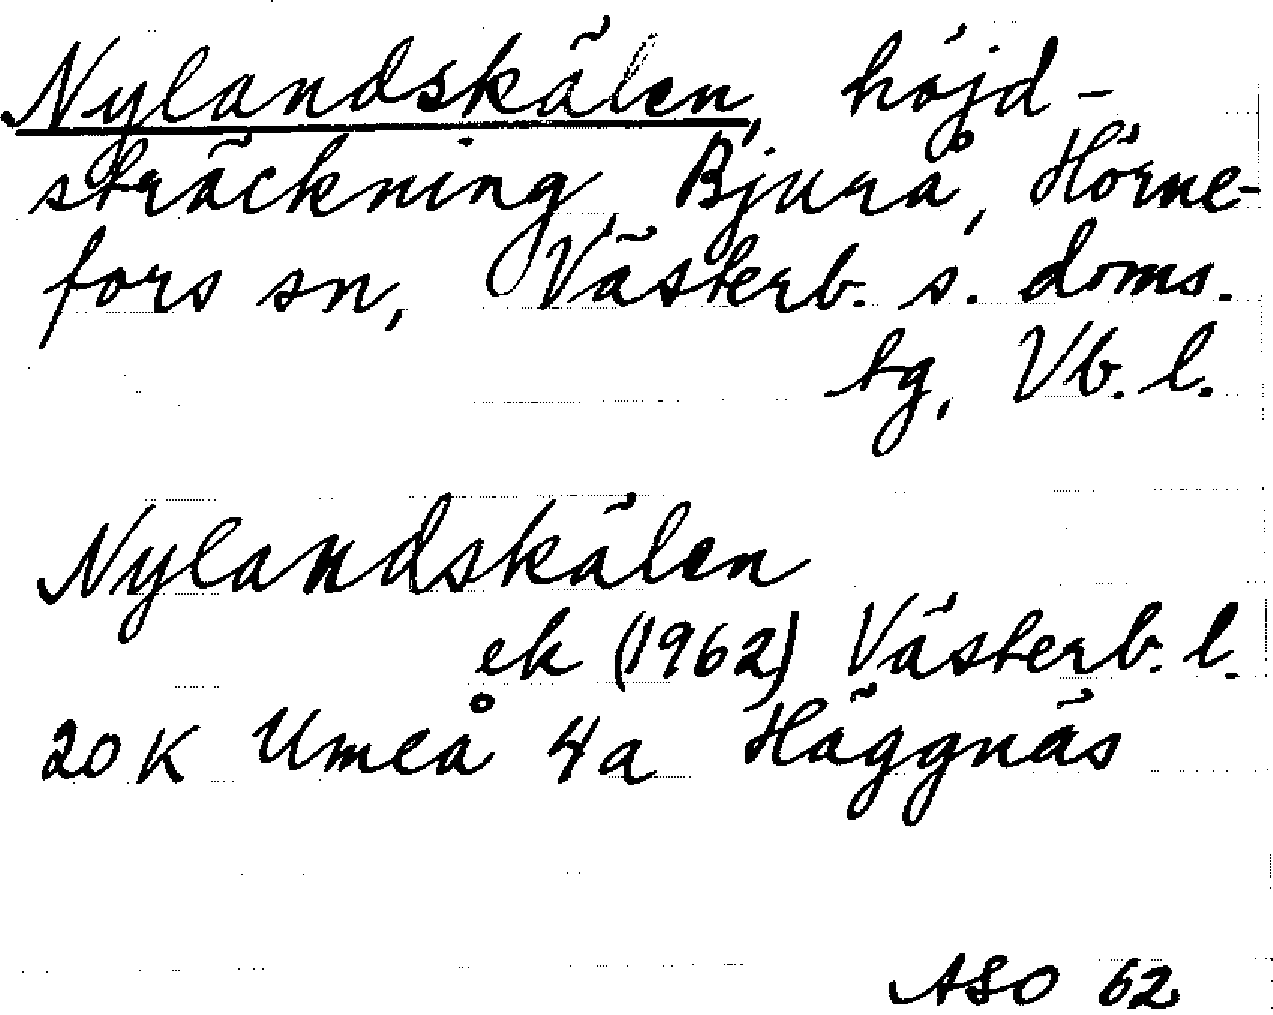 Nylandskälen, höjd-
sträckning, Bjurå, Hörne-
fors sn, Västerb. s. doms.
tg, Vb. l.
Nylandskälen
ek (1962) Västerb. l.
20K Umeå 4a Häggnäs
ASO 62